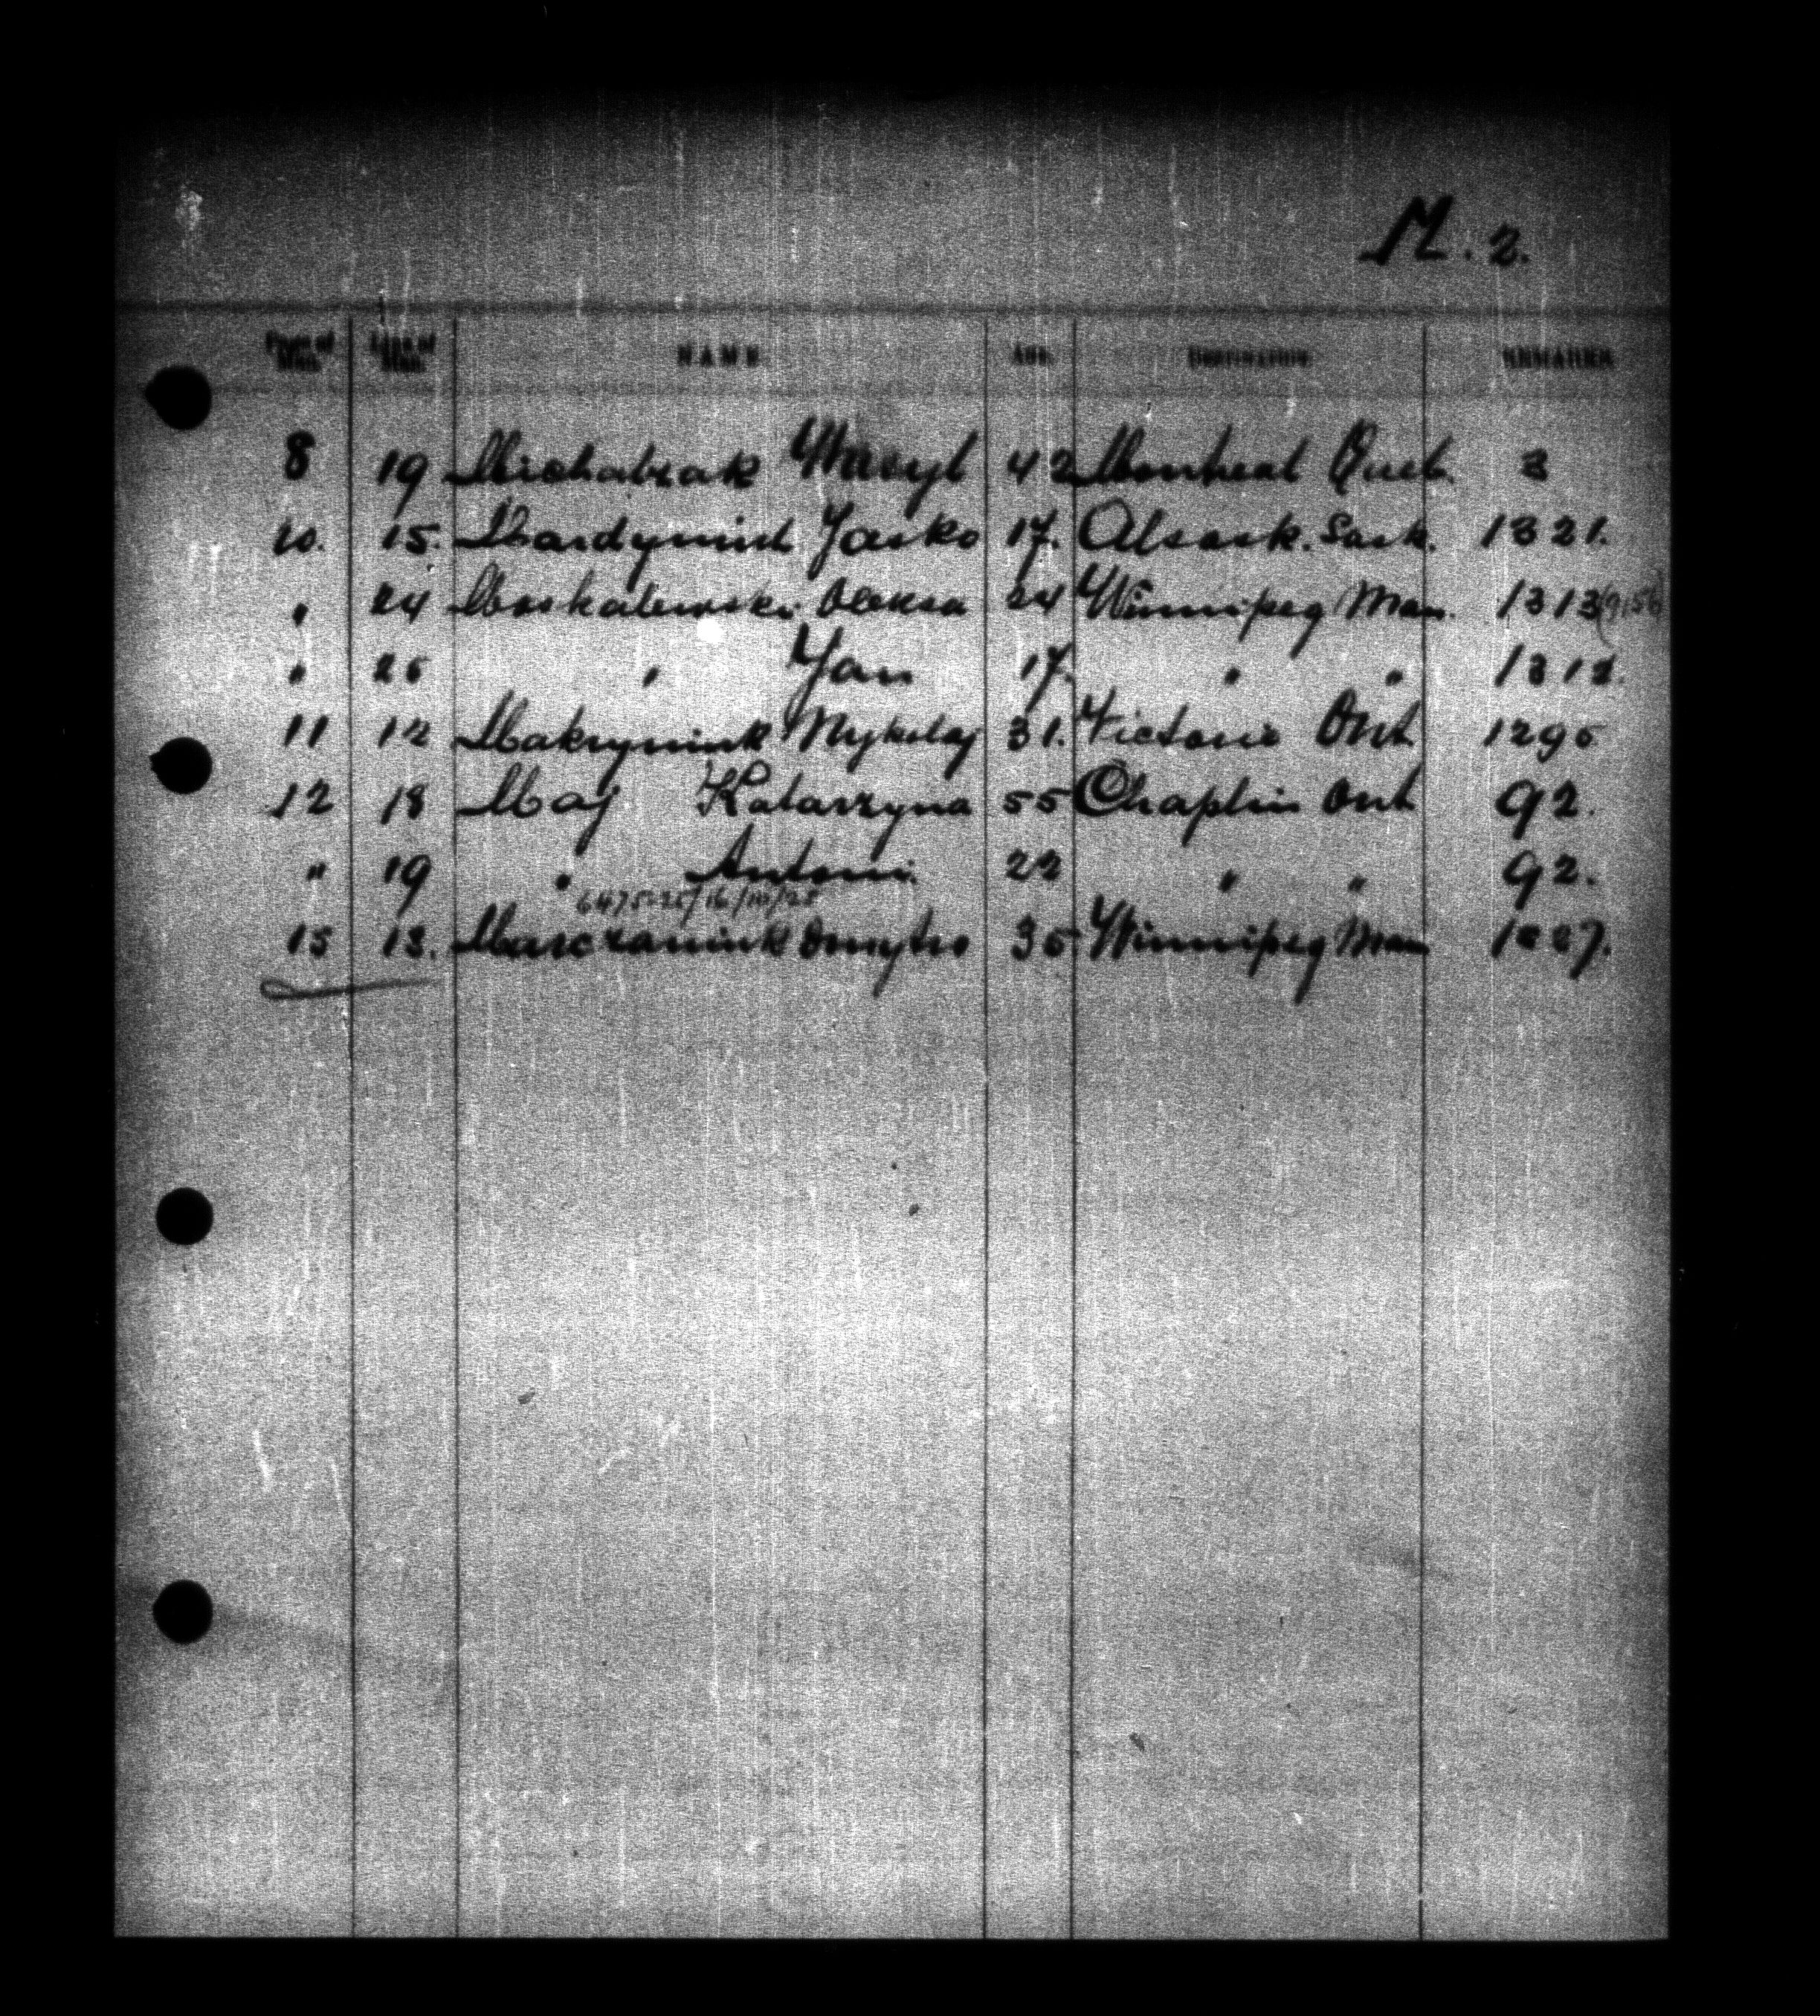 M. 2.
Page of Line of NAME AGE DESTINATION REMARKS
8 19 Michalzak Wasyl 42 Montreal Queb. 3
10. 15. Jasko 17. Alsask. Sask. 1321.
" 24 Moskalewski Oleksa 24 Winnipeg Man. 1313
" 25 " Jan 17. " " 1312.
11 12 Makryniuk Mykolaj 31. Victoria Ont 1295
12 18 Maj Katarzyna 55 Chaplin Ont 92.
" 19 " Antoni. 22 " " 92.
15 13. Marczaniuk Dmytro 35 Winnipeg Man